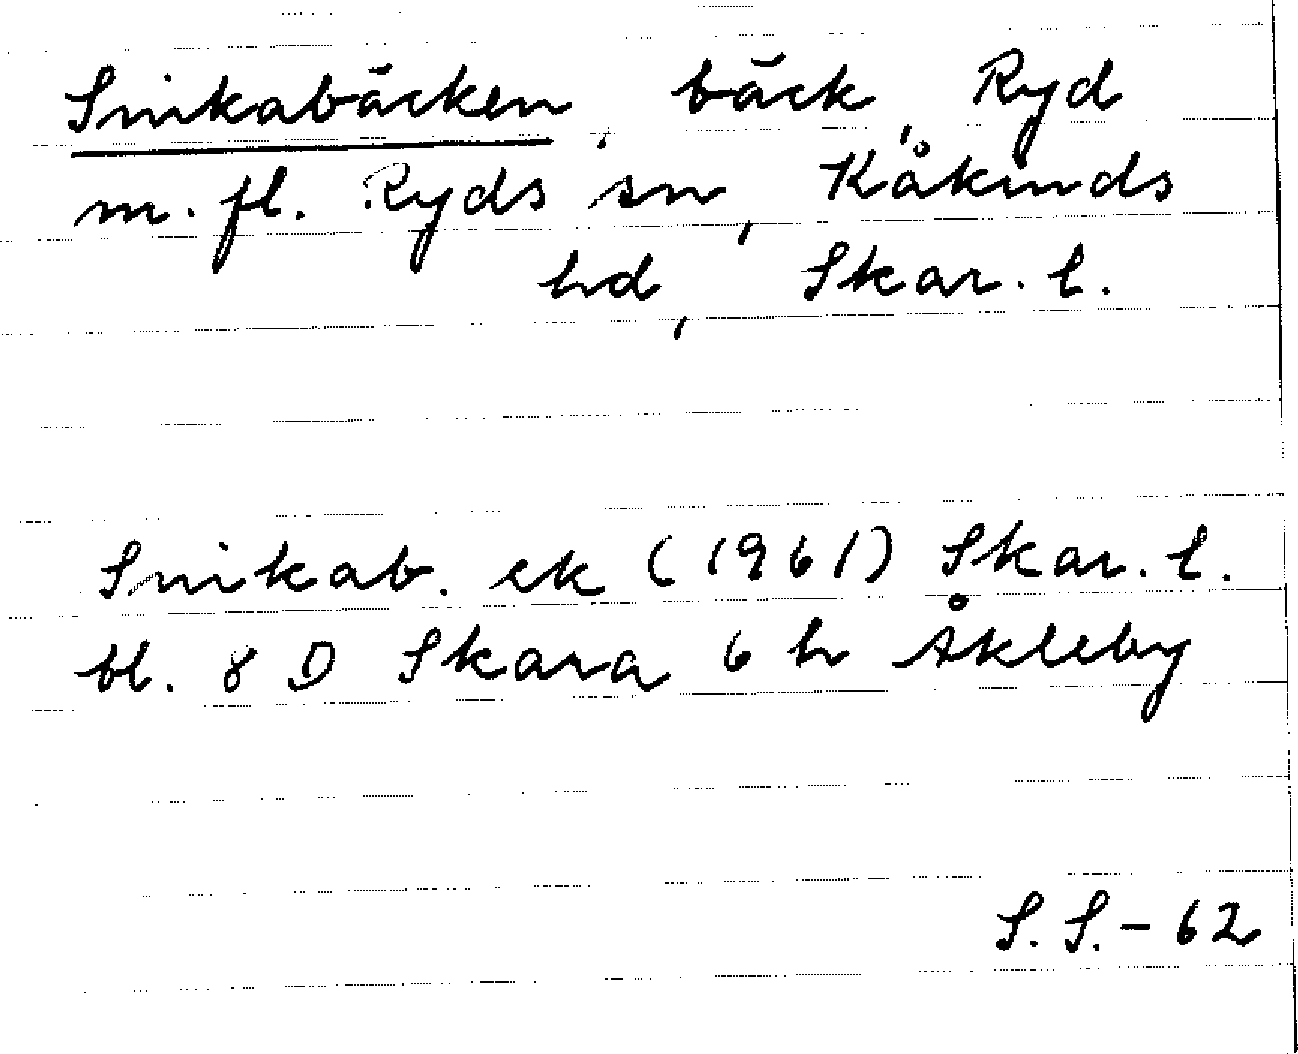 Snikabäcken, bäck, Ryd
m. fl. Ryds sn, Kåkinds
hd, Skar. l.
Snikab. ek (1961) Skar. l.
bl. 8 D Skara 6 h Åkleby
S. S. - 62